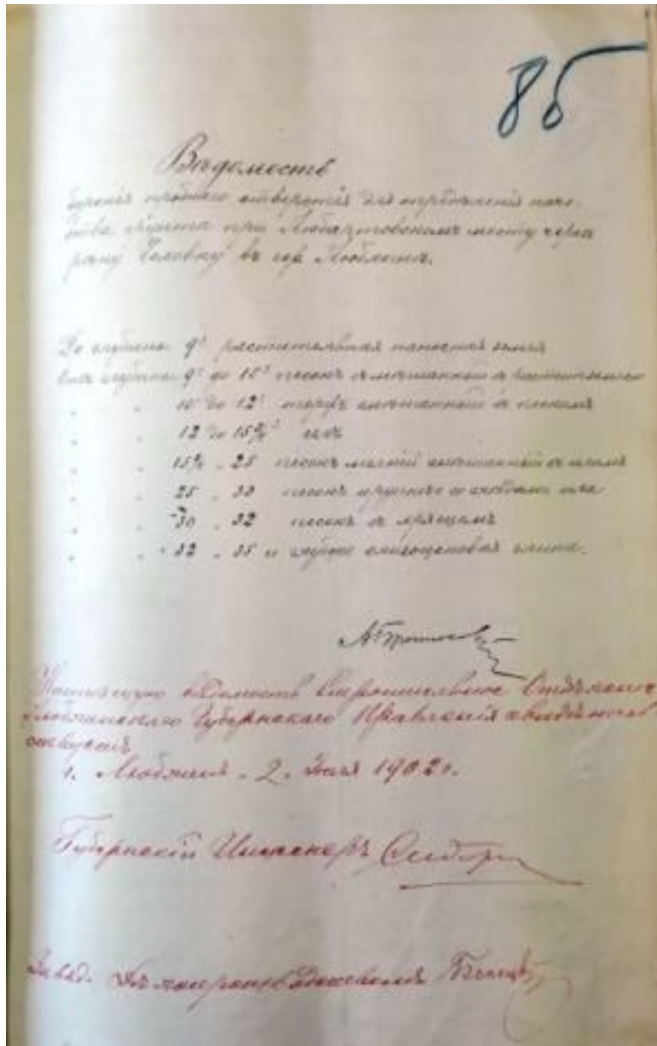 86
Вѣдомость
буренія пробнаго отверстія для опредѣленія каче-
ства грунта при Любартовскомъ мосту черезъ
рѣчку Чеховку въ гор. Люблинѣ.
До глубины 9' растительная наносная земля
Отъ глубины 9' до 10' песокъ смѣшанный съ растительною
" " 10' до 12' торфъ смѣшанный съ пескомъ
" " 12 до 15 илъ
" " 15 " 25 песокъ мелкій смѣшанный съ иломъ
" " 25 " 30 песокъ крупный со слоями ила
" " 30 " 32 песокъ съ хрящемъ
" " 32 " 35 и глубже глина.
Настоящую вѣдомость Строительное Отдѣленіе
Люблинскаго Губернскаго Правленія
г. Люблинъ. 2. 1902 г.
Губернскій Инженеръ
Завѣд. Дѣлопроизводствомъ